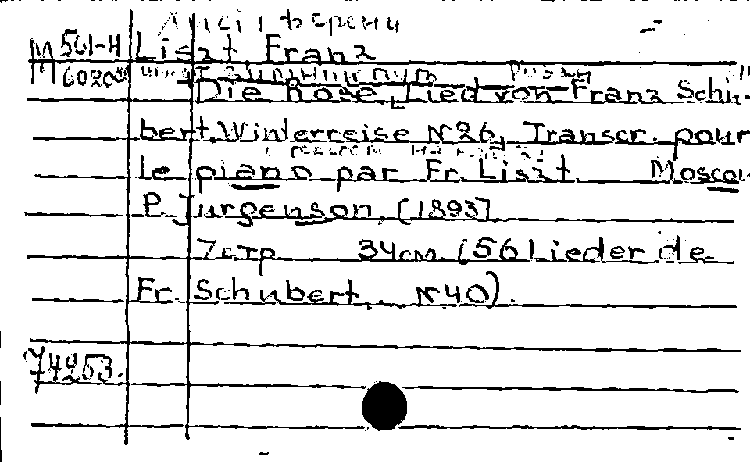 М 561-Н Liszt, Franz
М 6020
Die Rose, Lied von Franz Schu-
bert, Winterreise N 26, Transcr. pour
le piano par Fr. Liszt. Moscou
P. Jurgenson, [1893]
7 стр. 34 см. (56 Lieder de
Fr. Schubert, N 40).
74253.